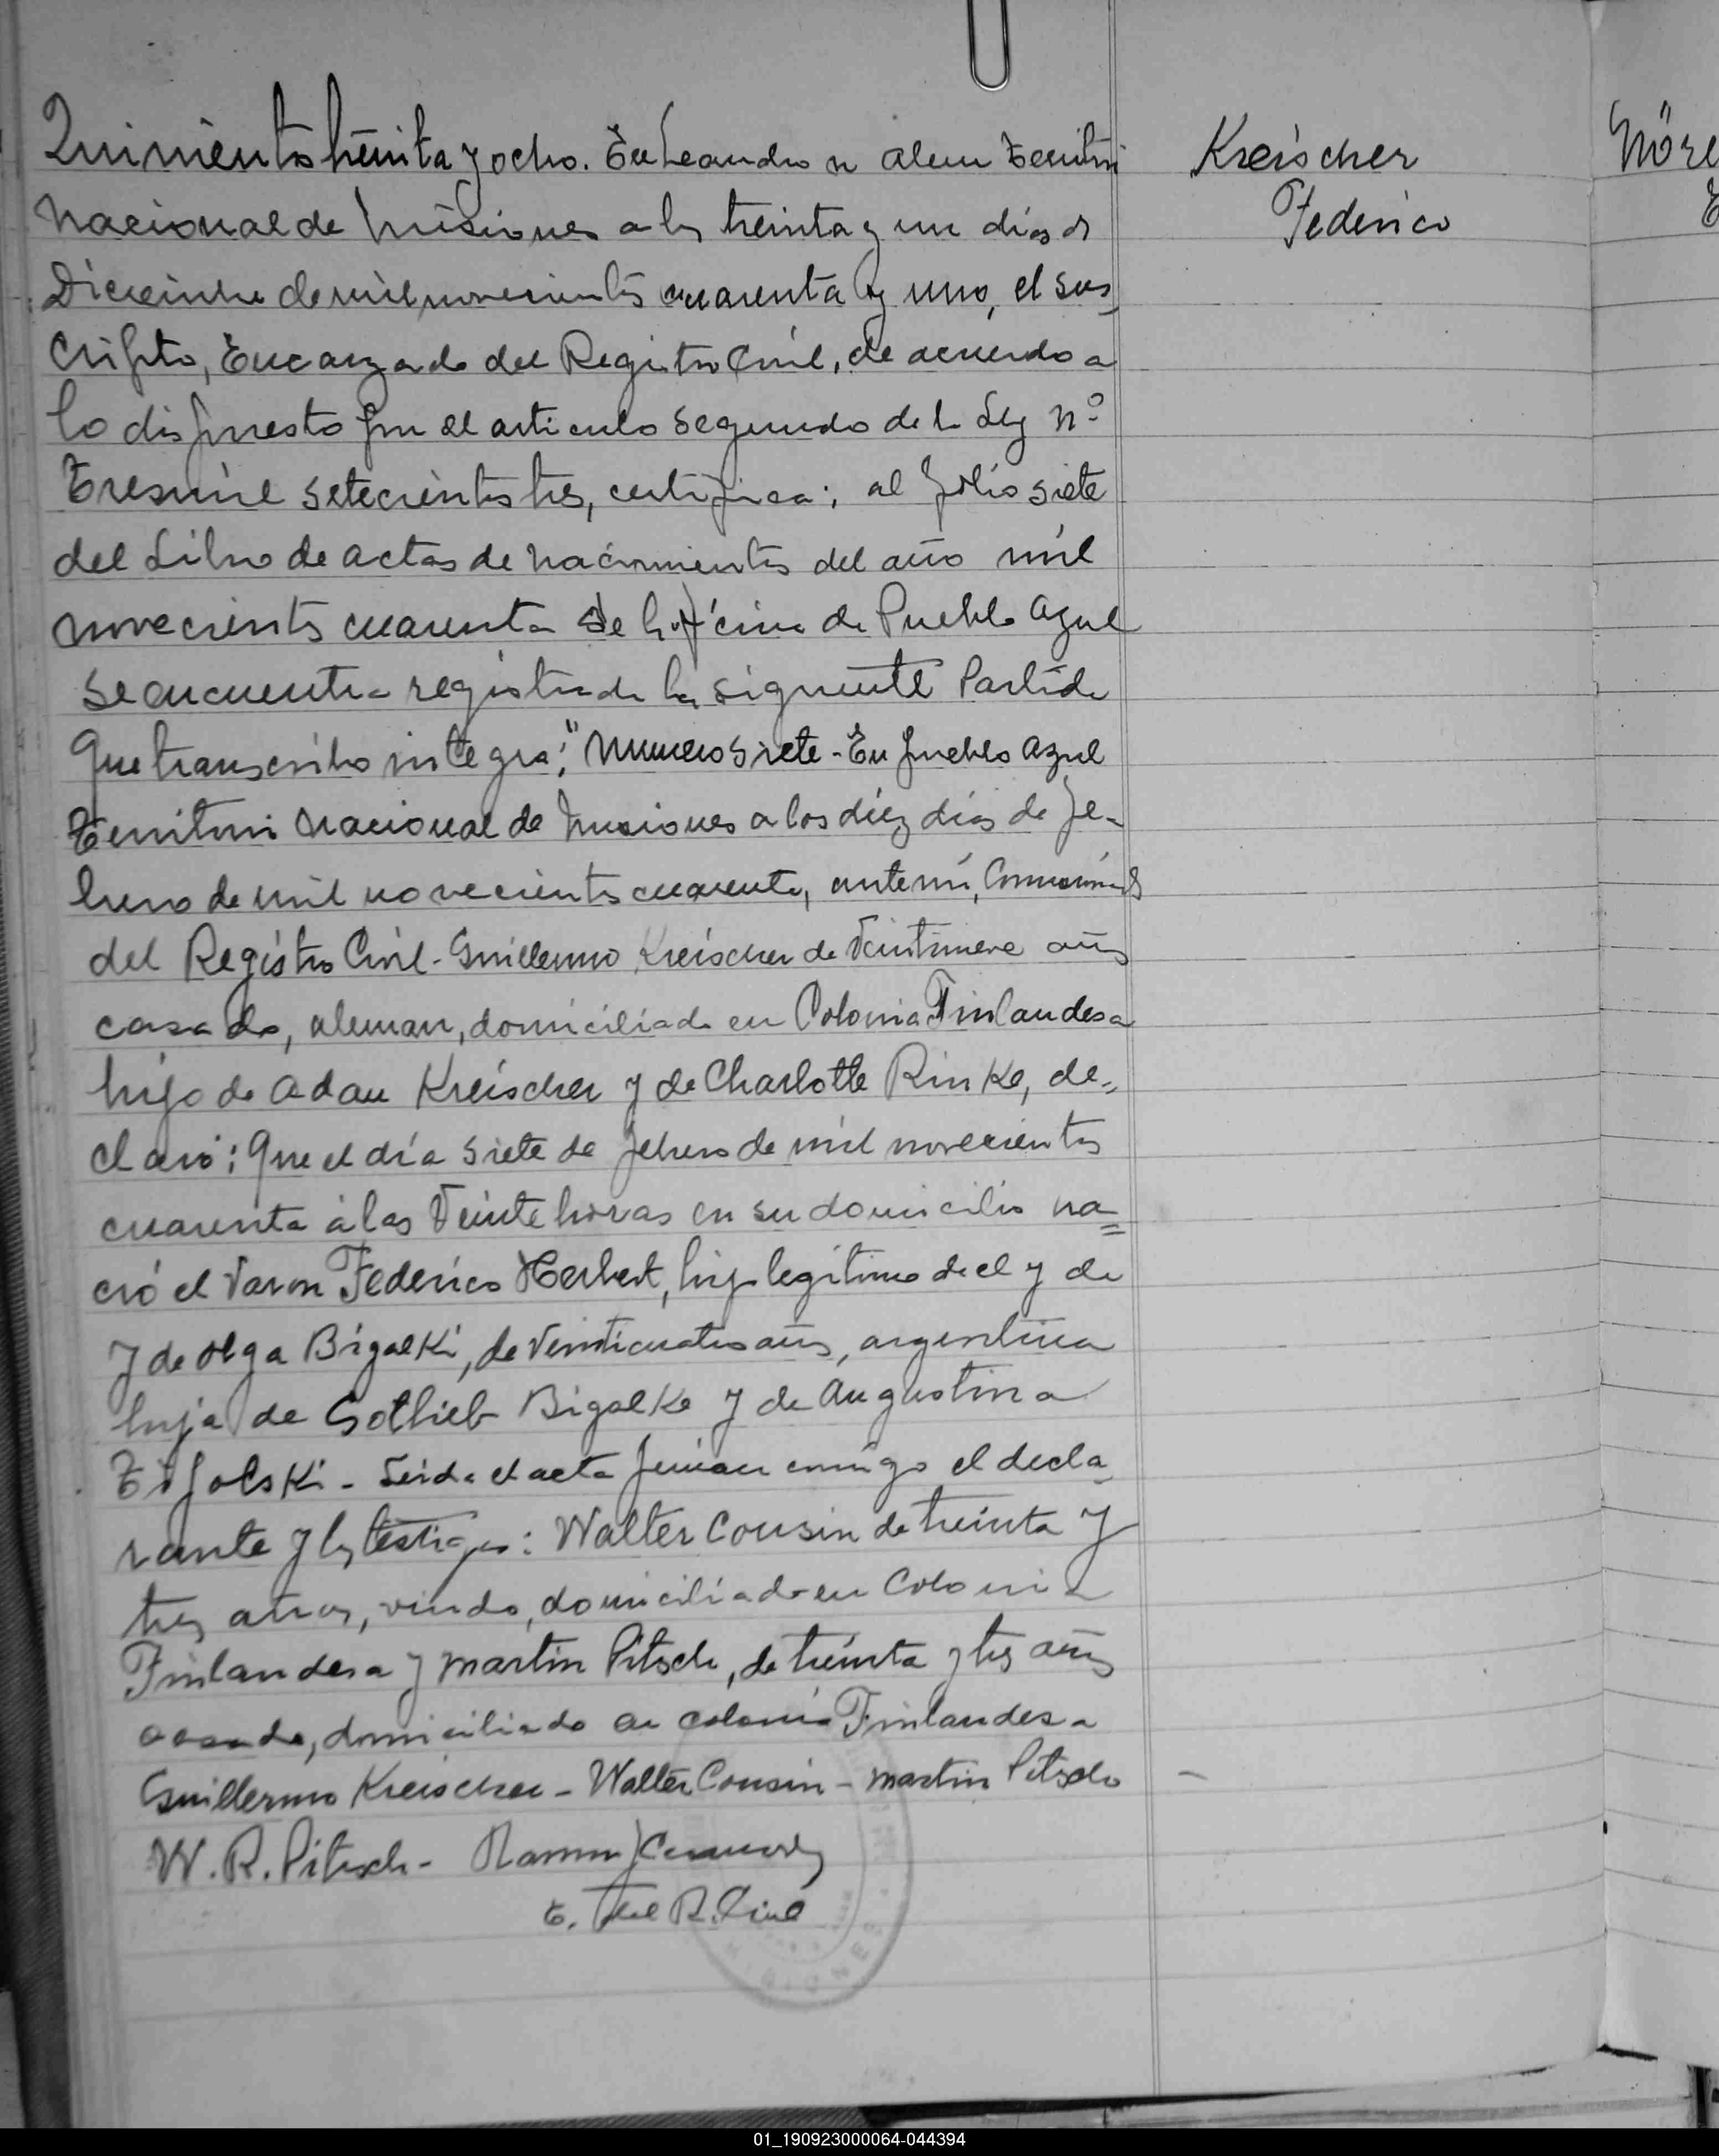 Quinientos treinta y ocho. En Leandro n alem Territori
Nacional de Misiones a los treinta y un dias de
Diciembre de mil novecientos cuarenta y uno, el sus,
cripto, Encargado del Registro Civil, de acuerdo a
lo dispuesto por el articulo segundo de la Ley nº
Tresmil setecientos tres, certifica; al folio siete
del Libro de actas de nacimientos del año mil
novecientos cuarenta de la oficina de Pueblo Azul
se encuentra registrada la siguiente Partida
que transcribo integra: "Numero siete - En pueblo azul
Territorio Nacional de Misiones a los diez dias de fe-
brero de mil novecientos cuarenta, ante mi,
del Registro Civil - Guillermo Kreischer de Veintinueve años
casado, aleman, domiciliado en Colonia Finlandesa
hijo de Adan Kreischer y de Charlotte Rinke, de-,
claró: Que el día siete de febrero de mil novecientos
cuarenta á las Veinte horas en su domicilio na=
ció el Varon Federico Herbert, hijo legitimo de el y de
y de Olga Bigalki, de Veinticuatro años, argentina
hija de Gotlieb Bigalke y de Augustina
Leida el acta firman conmigo el decla,
rante y los testigos: Walter Cousin de treinta y
tres años, viudo, domiciliado en Colonia
Finlandesa y Martin Pitsch, de treinta y tres años
casado, domiciliado en colonia Finlandesa
Guillermo Kreischer - Walter Cousin - Martin Pitsch -
W. R. Pitsch - Ramon
E. del R. Civil
Kreischer
Federico
MISIONES
01_190923000064-044394